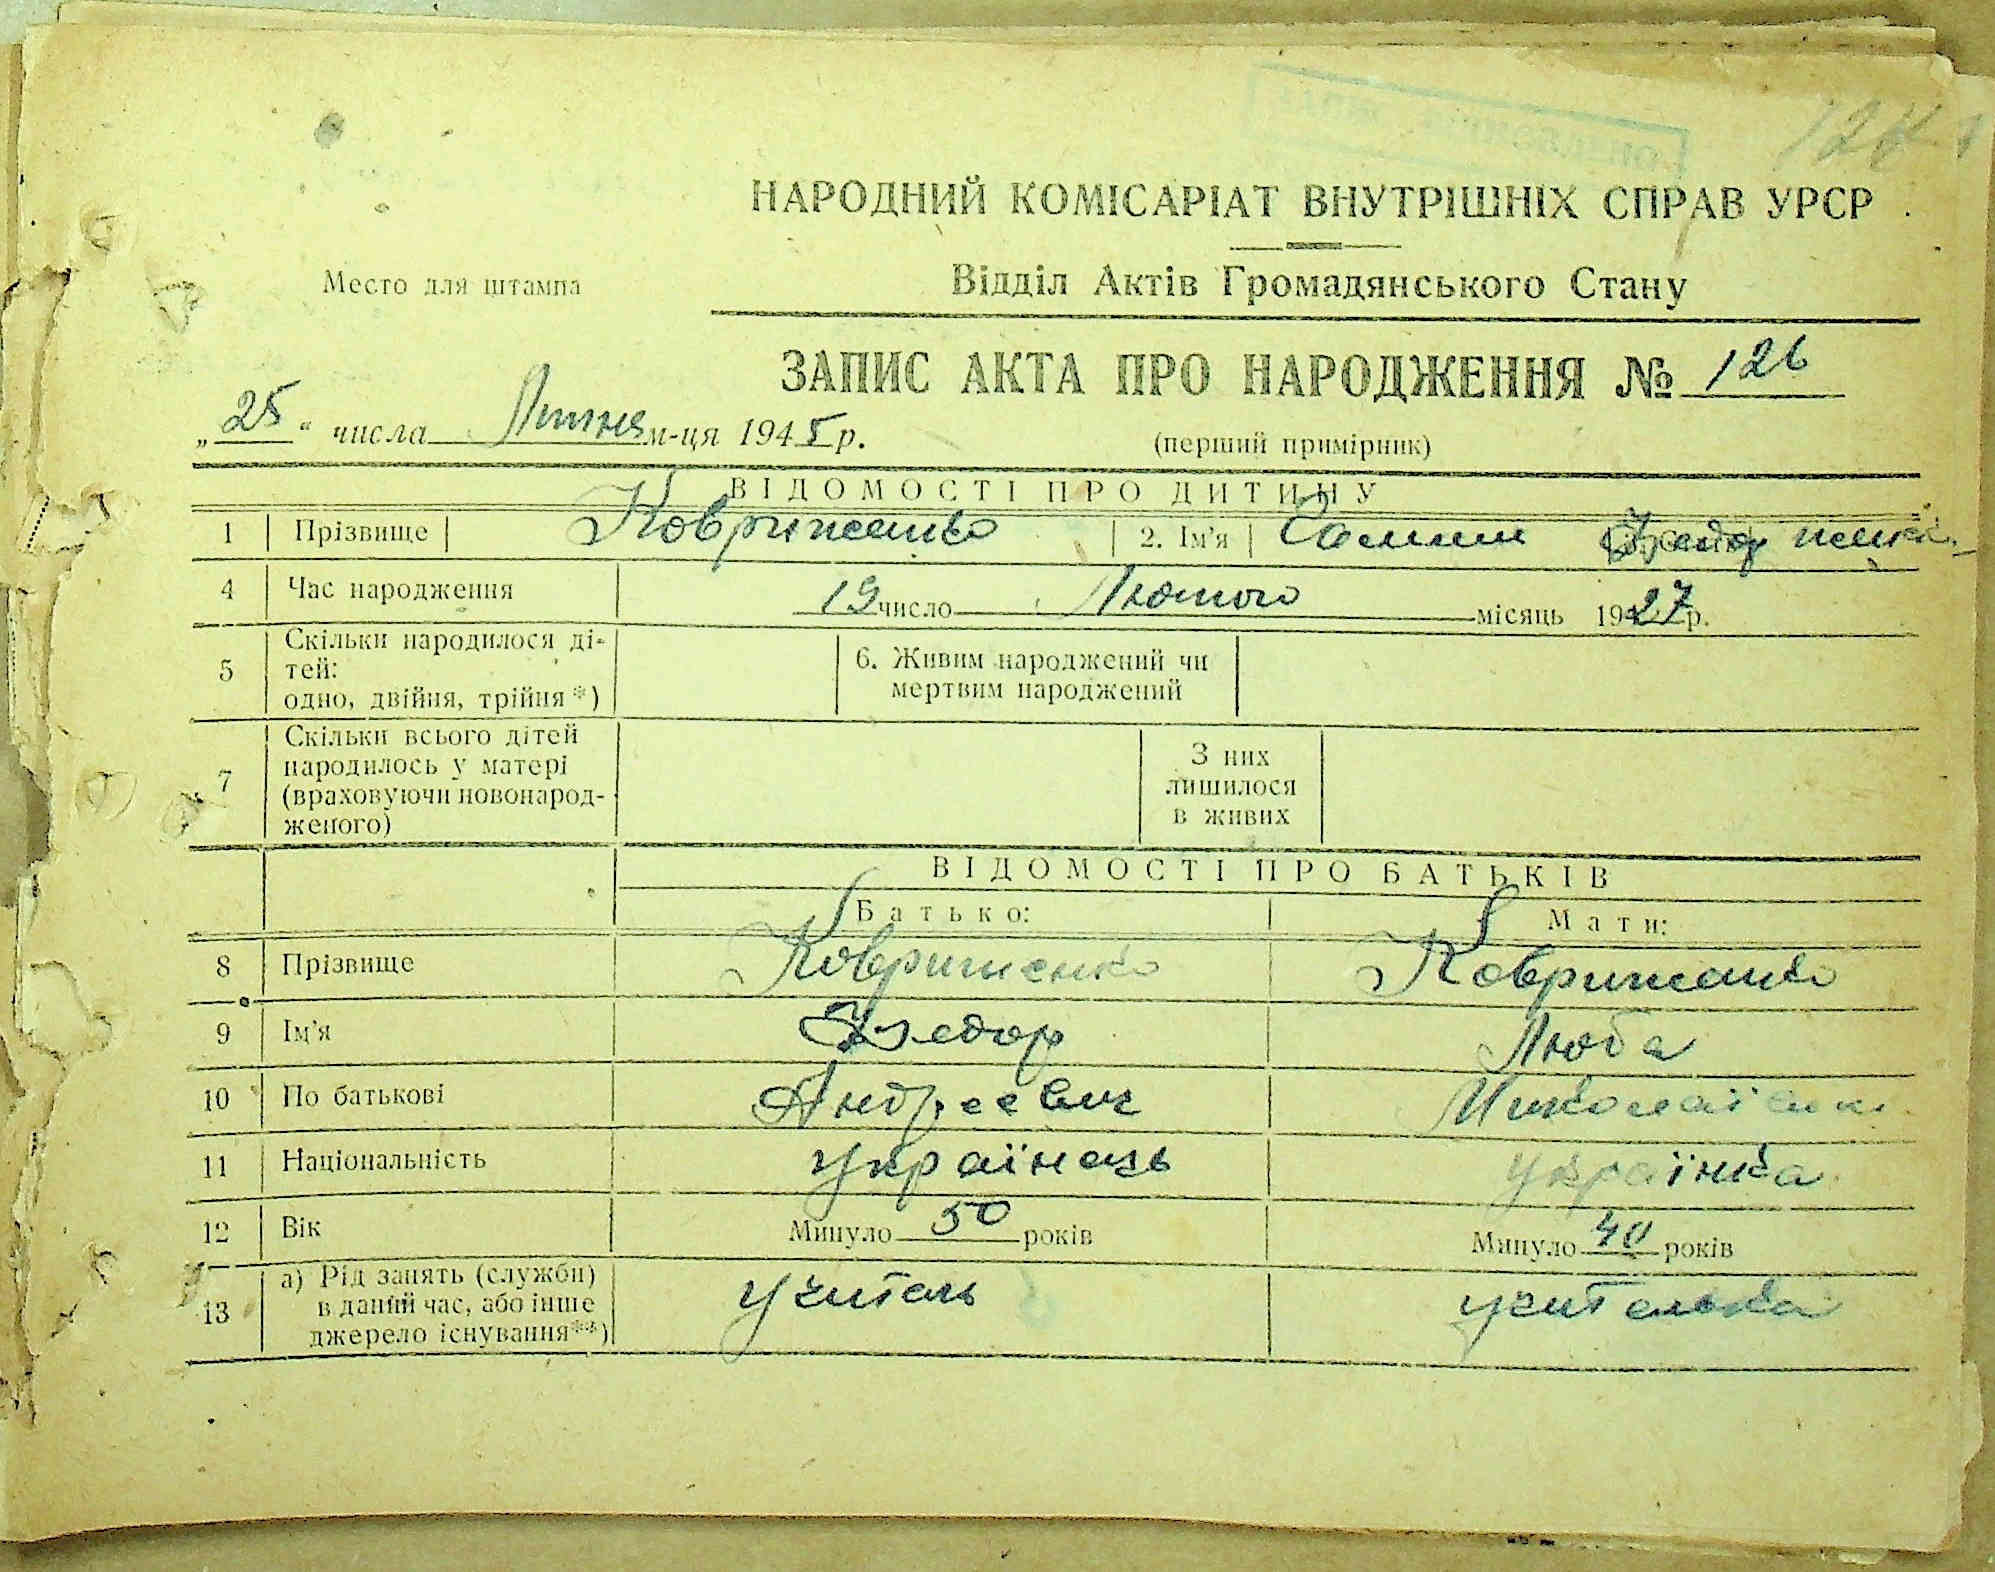 НАРОДНИЙ КОМІСАРІАТ ВНУТРІШНІХ СПРАВ УРСР
Место для штампа
Відділ Актів Громадянського Стану
ЗАПИС АКТА ПРО НАРОДЖЕННЯ № 126
„25“ числа Липня м-ця 1945 р.
(перший примірник)
ВІДОМОСТІ ПРО ДИТИНУ
1 Прізвище Ковриженко 2. Ім'я Федор
4 Час народження 19 число Лютого місяць 1927 р.
5 Скільки народилося ді-
тей:
одно, двійня, трійня*)
6. Живим народжений чи
мертвим народжений
7 Скільки всього дітей
народилось у матері
(враховуючи новонарод-
женого)
З них
лишилося
в живих
ВІДОМОСТІ ПРО БАТЬКІВ
Батько: Мати:
8 Прізвище Ковриженко Ковриженко
9 Ім'я Федор Люба
10 По батькові Андреевич
11 Національність українець українка
12 Вік Минуло 50 років Минуло 40 років
13 а) Рід занять (служби)
в даний час, або інше
джерело існування**)
учитель учителька